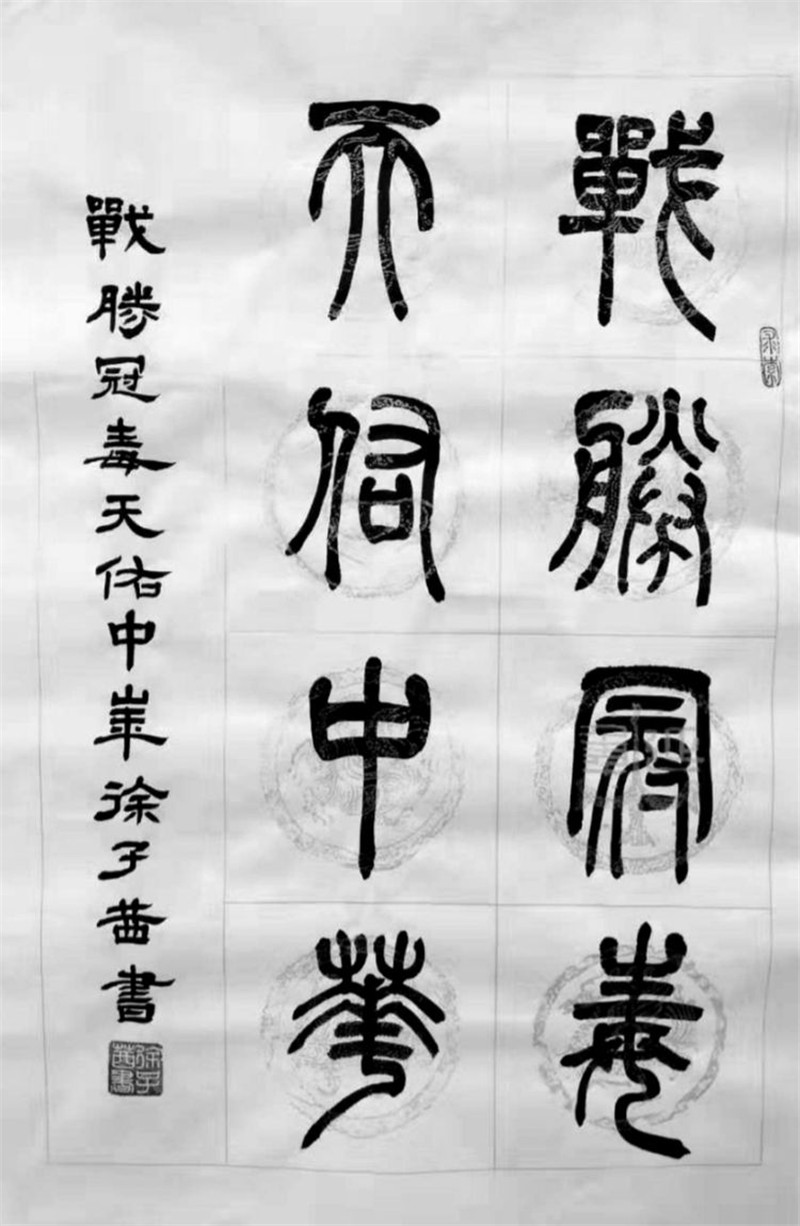 戰勝冠毒
天佑中華
戰勝冠毒天佑中華徐子茜書
徐子茜書